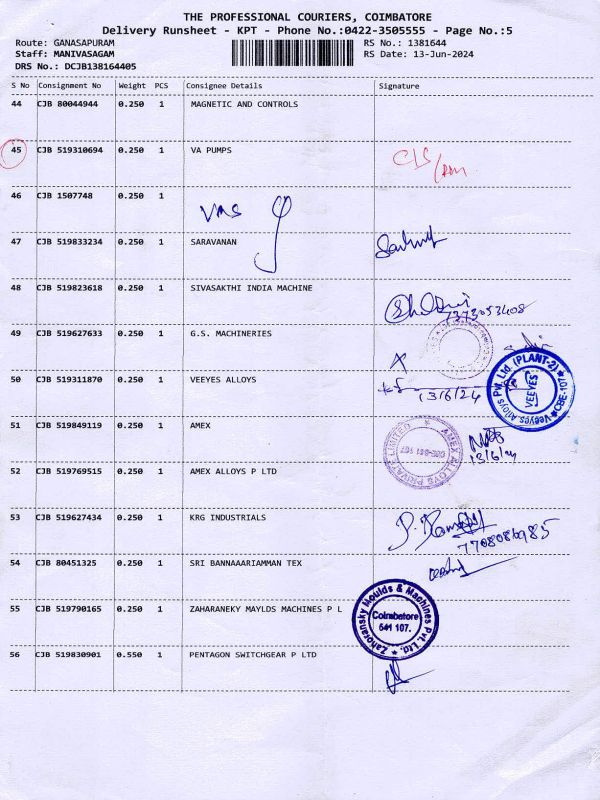 THE PROFESSIONAL COURIERS, COIMBATORE
Delivery Runsheet - KPT - Phone No.:0422-3505555 - Page No.:5
Route: GANASAPURAM RS No.: 1381644
Staff: MANIVASAGAM RS Date: 13-Jun-2024
DRS No.: DCJB138164405
S No Consignment No Weight PCS Consignee Details Signature
44 CJB 80044944 0.250 1 MAGNETIC AND CONTROLS
45 CJB 519310694 0.250 1 VA PUMPS
46 CJB 1507748 0.250 1
VMS
47 CJB 519833234 0.250 1 SARAVANAN
48 CJB 519823618 0.250 1 SIVASAKTHI INDIA MACHINE
7373053408
49 CJB 519627633 0.250 1 G.S. MACHINERIES
50 CJB 519311870 0.250 1 VEEYES ALLOYS
13/6/24
Veeyes Alloys Pvt. Ltd. (PLANT-2) CBE-107
VEEYES
51 CJB 519849119 0.250 1 AMEX
AMEX ALLOYS PRIVATE LIMITED
CBE-641 107
13/6/24
52 CJB 519769515 0.250 1 AMEX ALLOYS P LTD
53 CJB 519627434 0.250 1 KRG INDUSTRIALS
7708086985
54 CJB 80451325 0.250 1 SRI BANNAAARIAMMAN TEX
55 CJB 519790165 0.250 1 ZAHARANEKY MAYLDS MACHINES P L
Zahoransky Moulds & Machines Pvt. Ltd.
Coimbatore
641 107.
56 CJB 519830901 0.550 1 PENTAGON SWITCHGEAR P LTD